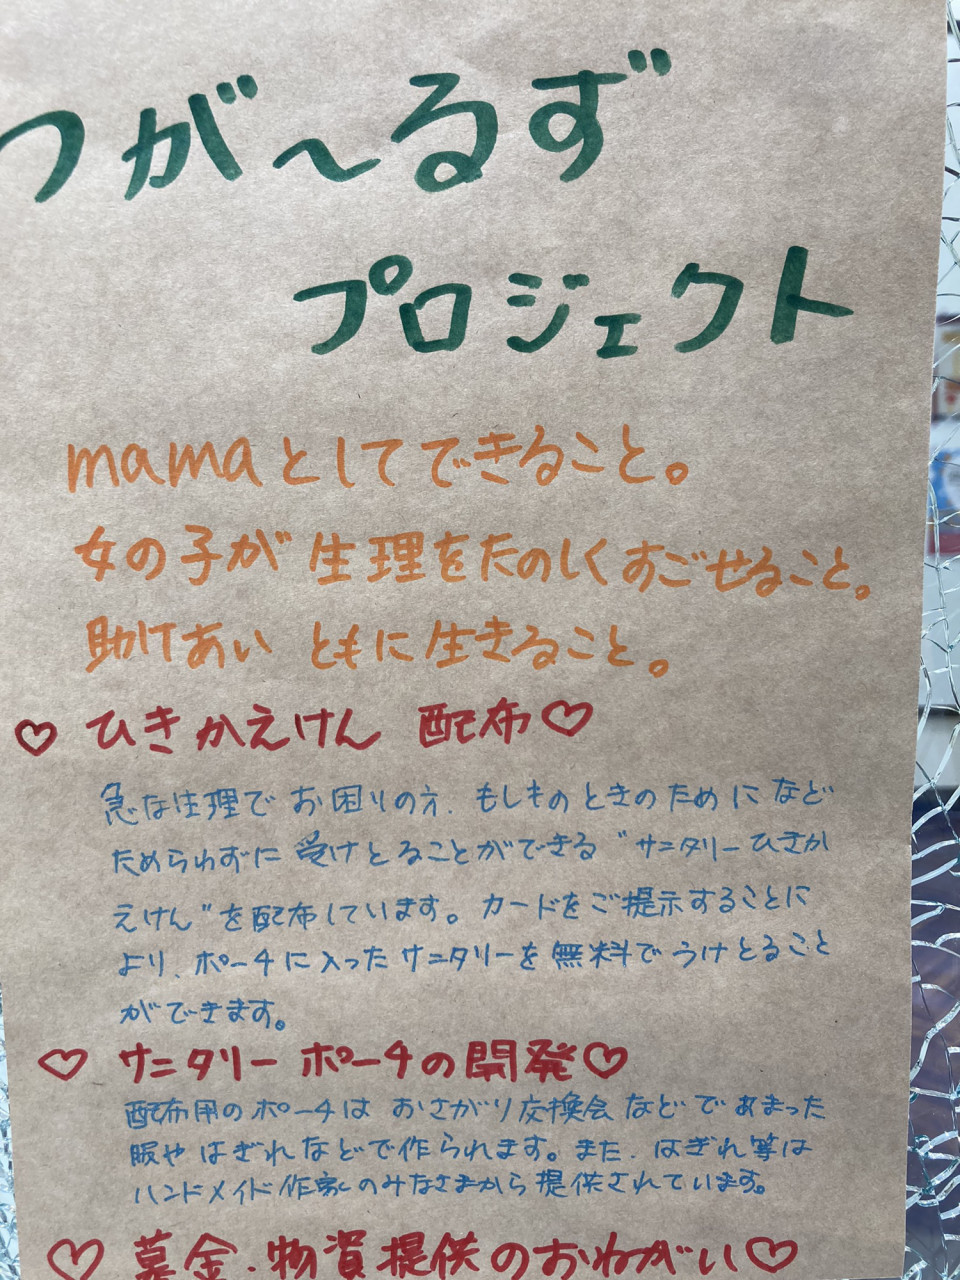 つが～るず
プロジェクト
mamaとしてできること。
女の子が生理をたのしくすごせること。
助けあい ともに生きること。
♡ ひきかえけん 配布♡
急な生理でお困りの方、もしものときのためになど
ためらわずに受けとることができる"サニタリーひきか
えけん"を配布しています。カードをご提示することに
より、ポーチに入ったサニタリーを無料でうけとること
ができます。
♡ サニタリーポーチの開発♡
配布用のポーチはおさがり交換会などであまった
服やはぎれなどで作られます。また、はぎれ等は
ハンドメイド作家のみなさまから提供されています。
♡ 募金・物資提供のおねがい♡